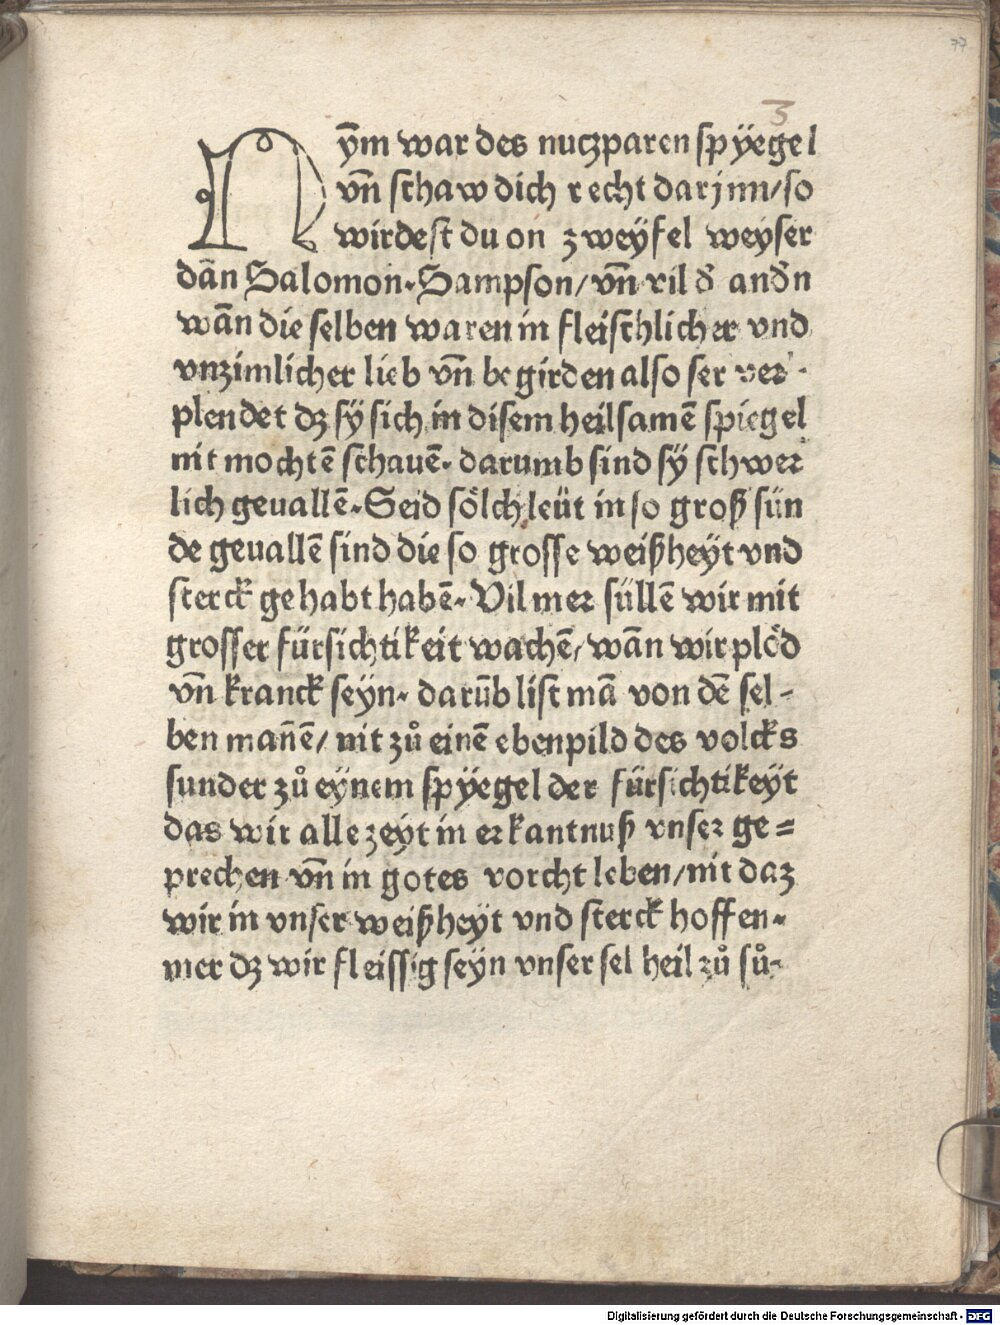 77
3
Nȳm war des nutzparen spÿegel
vn̄ schaw dich recht darjnn/so
wirdest du on zweÿfel weyser
dān Salomon. Sampson/ vn̄ vil đ andn̄
wān die selben waren in fleischlicher vnd
vnzimlicher lieb vn̄ begirden also ser ver-
plendet dz sÿ sich in disem heilsamē spiegel
nit mochtē schauē. darumb sind sÿ schwer
lich geuallē. Seid sölch leüt in so groß sün
de geuallē sind die so grosse weißheÿt vnd
sterck gehabt habē. Vil mer süllē wir mit
grosser fürsichtikeit wachē/ wān wir plöd
vn̄ kranck seÿn. darūb list mā von dē sel-
ben man̄ē/ nit zů einē ebenpild des volcks
sunder zů eÿnem spÿegel der fürsichtikeÿt
das wir alle zeÿt in erkantnuß vnser ge=
prechen vn̄ in gotes vorcht leben/nit daz
wir in vnser weißheÿt vnd sterck hoffen.
mer dz wir fleissig seÿn vnser sel heil zů sů-
Digitalisierung gefördert durch die Deutsche Forschungsgemeinschaft - DFG